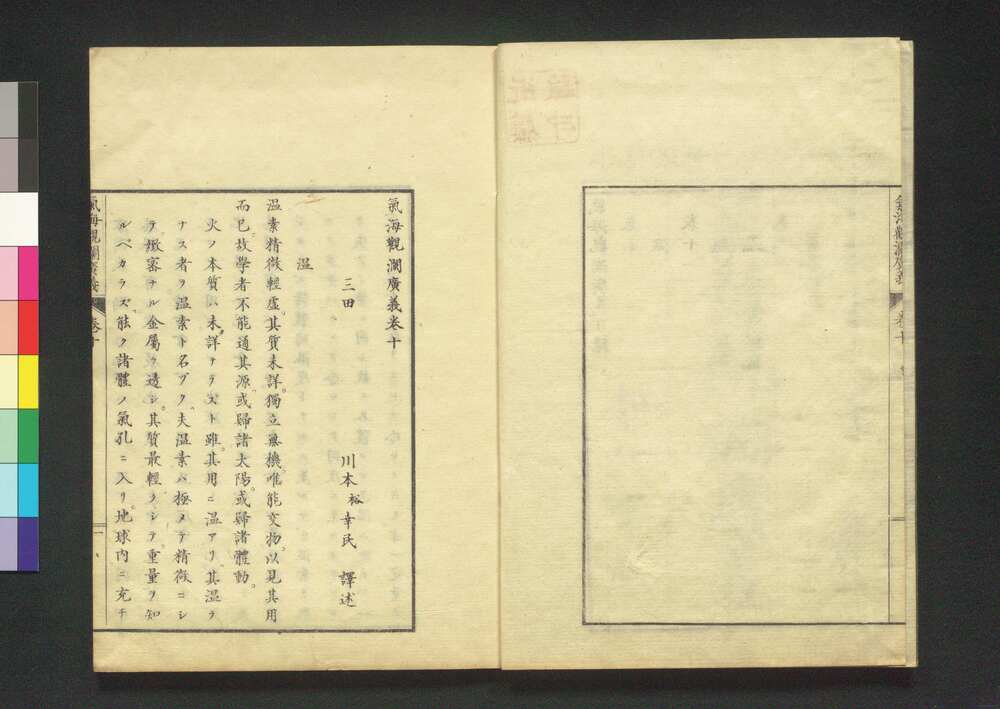 氣海觀瀾廣義
卷十
氣海觀瀾廣義卷十
三田 川本裕幸民 譯述
溫
溫素精微輕虛。其質未詳。獨立無機。唯能交物。以見其用
而已。故學者不能適其源。或歸諸太陽。或歸諸體動。
火ノ本質ハ未詳ナラズト雖。其用ニ溫アリ。其溫ヲ
ナス者ヲ溫素ト名ヅク。夫溫素ハ極メテ精微ニシ
テ緻密ナル金屬ヲ透シ。其質最輕クシテ重量ヲ知
ルベカラズ。能ク諸體ノ氣孔ニ入リ。地球內ニ充チ
氣海觀瀾廣義
卷十
一